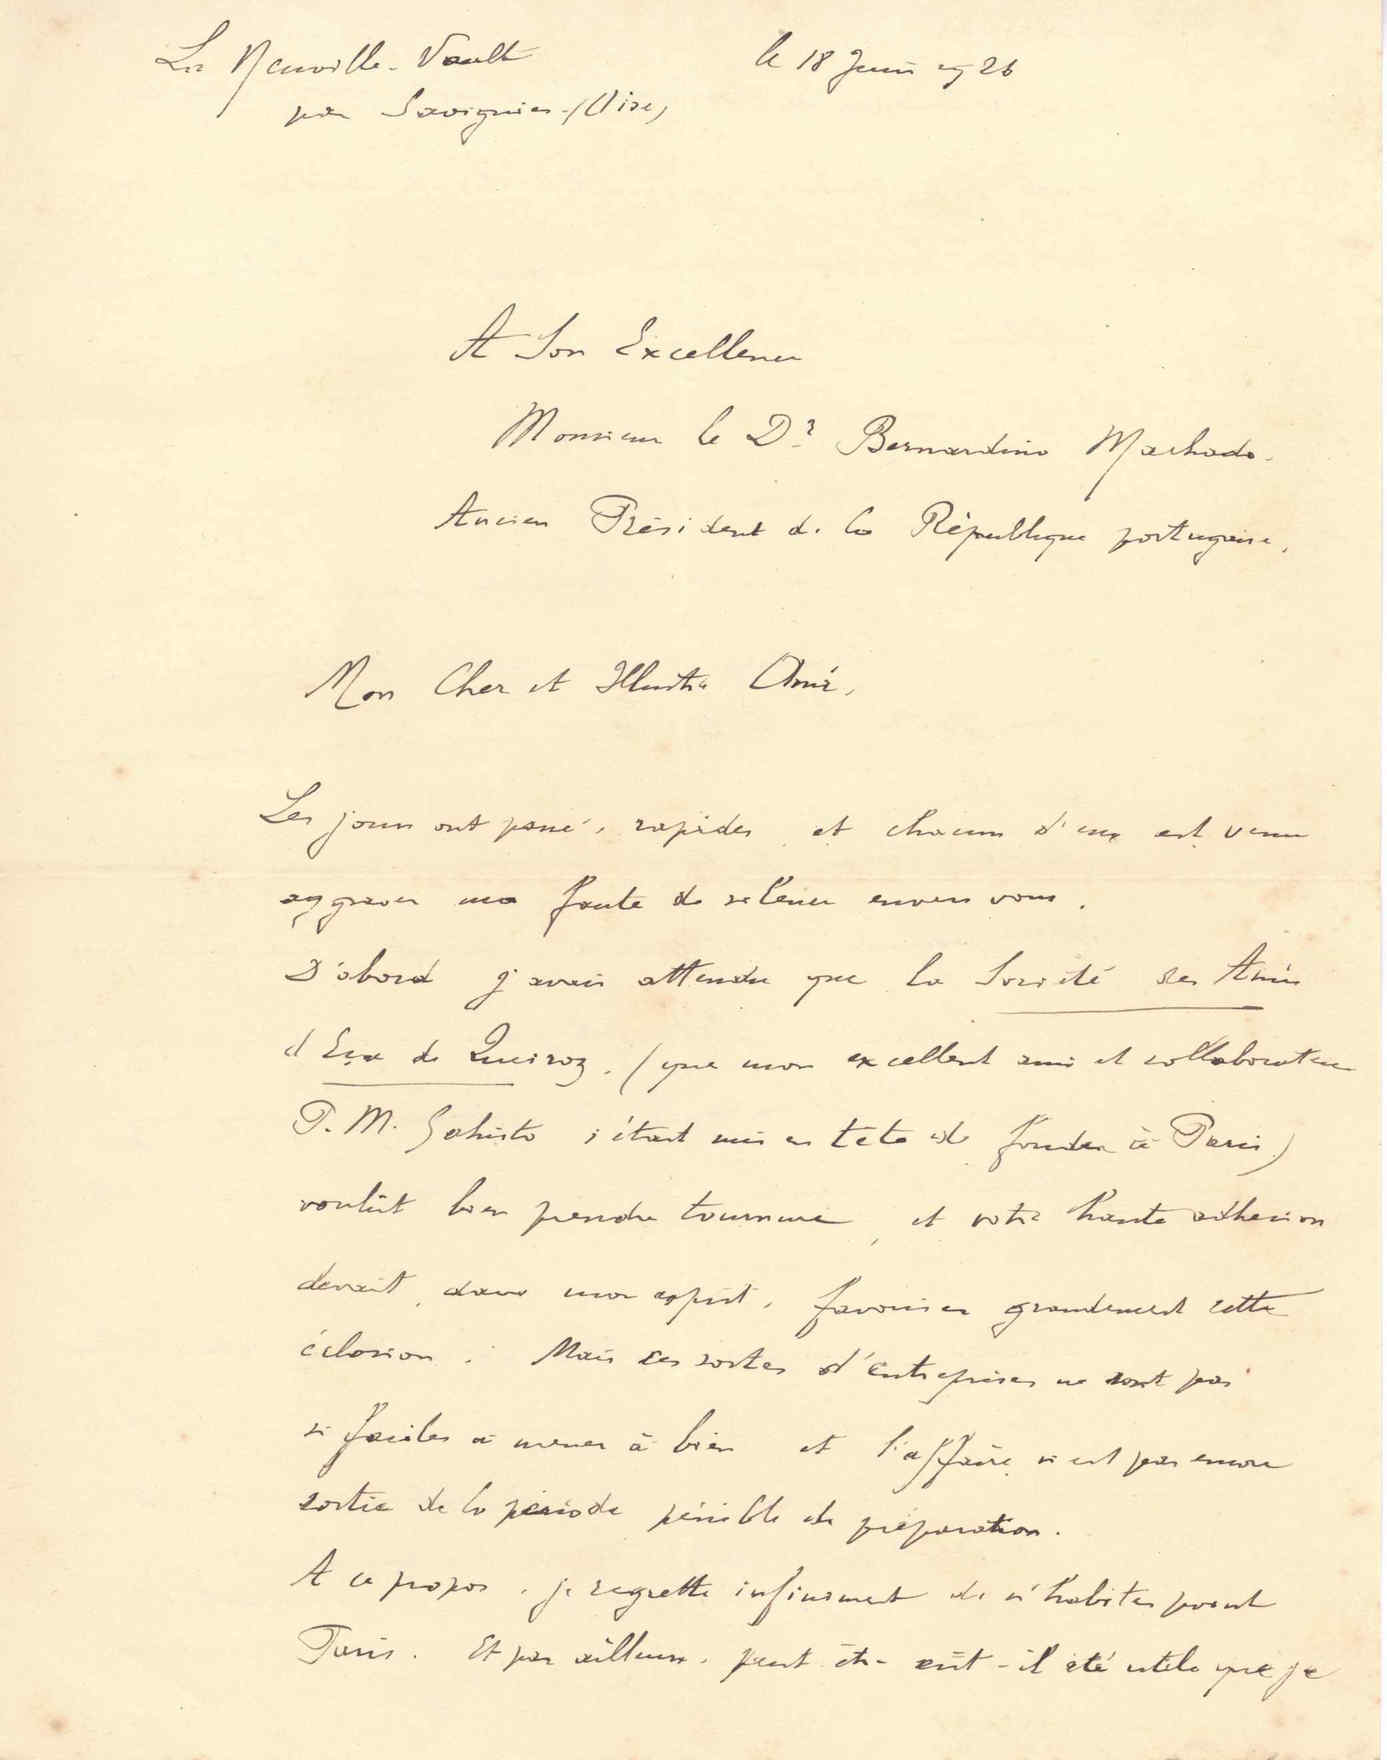 La Neuville-Vault le 18 Juin 1926
par Savignies-(Oise)
A Son Excellence
Monsieur le Dr Bernardino Machado.
Ancien Président de la République portugaise,
Mon Cher et Illustre Ami,
Les jours ont passé, rapides, et chacun d'eux est venu
aggraver ma faute de silence envers vous.
D'abord j'avais attendu que la Société des Amis
d'Eça de Queiroz, (que mon excellent ami et collaborateur
P. M. Gahisto s'était mis en tête de fonder à Paris)
voulût bien prendre tournure, et votre haute adhésion
devait, dans mon esprit, favoriser grandement cette
éclosion. Mais ces sortes d'entreprises ne sont pas
si faciles à mener à bien et l'affaire n'est pas encore
sortie de la période pénible de préparation.
A ce propos, je regrette infiniment de n'habiter point
Paris. Et par ailleurs, peut-être eût-il été utile que je